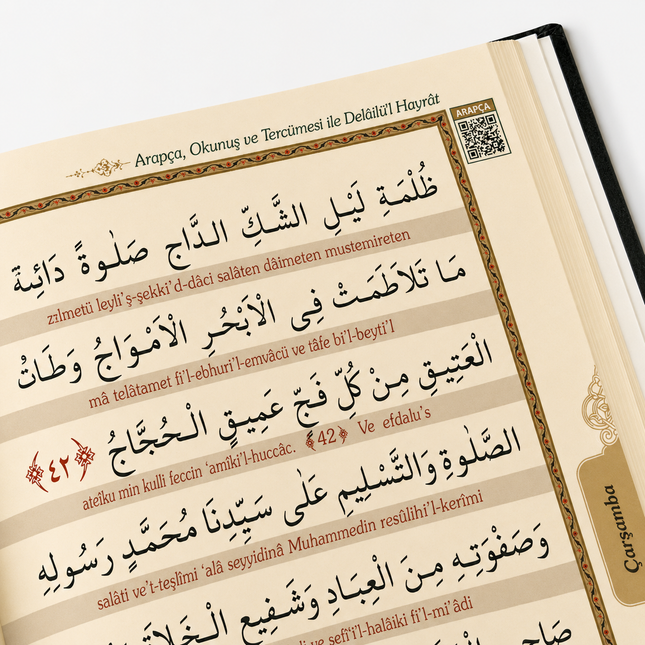 Arapça, Okunuş ve Tercümesi ile Delâilü'l Hayrât
ARAPÇA
ظُلْمَةِ لَيْلِ الشَّكِّ الدَّاجِ صَلٰوةً دَائِمَةً
zılmetü leyli'ş-şekki'd-dâci salâten dâimeten mustemireten
مَا تَلَاطَمَتْ فِى الْاَبْحُرِ الْاَمْوَاجُ وَطَاتُ
mâ telâtamet fi'l-ebhuri'l-emvâcü ve tâfe bi'l-beyti'l
الْعَتِيقِ مِنْ كُلِّ فَجٍّ عَمِيقٍ الْحُجَّاجُ ﴿٤٢﴾
ateîku min kulli feccin 'amîki'l-huccâc. ﴾42﴿ Ve efdalu's
الصَّلٰوةِ وَالتَّسْلِيمِ عَلٰى سَيِّدِنَا مُحَمَّدٍ رَسُولِهِ
salâti ve't-teşlîmi 'alâ seyyidinâ Muhammedin resûlihi'l-kerîmi
وَصَفْوَتِهِ مِنَ الْعِبَادِ وَشَفِيعِ
ve sefî'i'l-halâiki fi'l-mi'âdi
Çarşamba